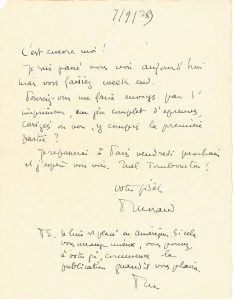 7/9/28)
C'est encore moi !
Je suis passé vous voir aujourd'hui
mais vous faisiez week end.
Pourriez-vous me faire envoyer par l'
imprimeur, un jeu complet d'épreuves,
corrigées ou non, y compris la première
partie ?
Je repasserai à Paris vendredi prochain
et j'espère vous voir. Quel Tombouctou !
votre fidèle
P Morand
P.S. Le livre est placé en Amérique. Si cela
vous arrange mieux, vous pouvez,
à votre gré, commencer la
publication quand il vous plaira.
PM